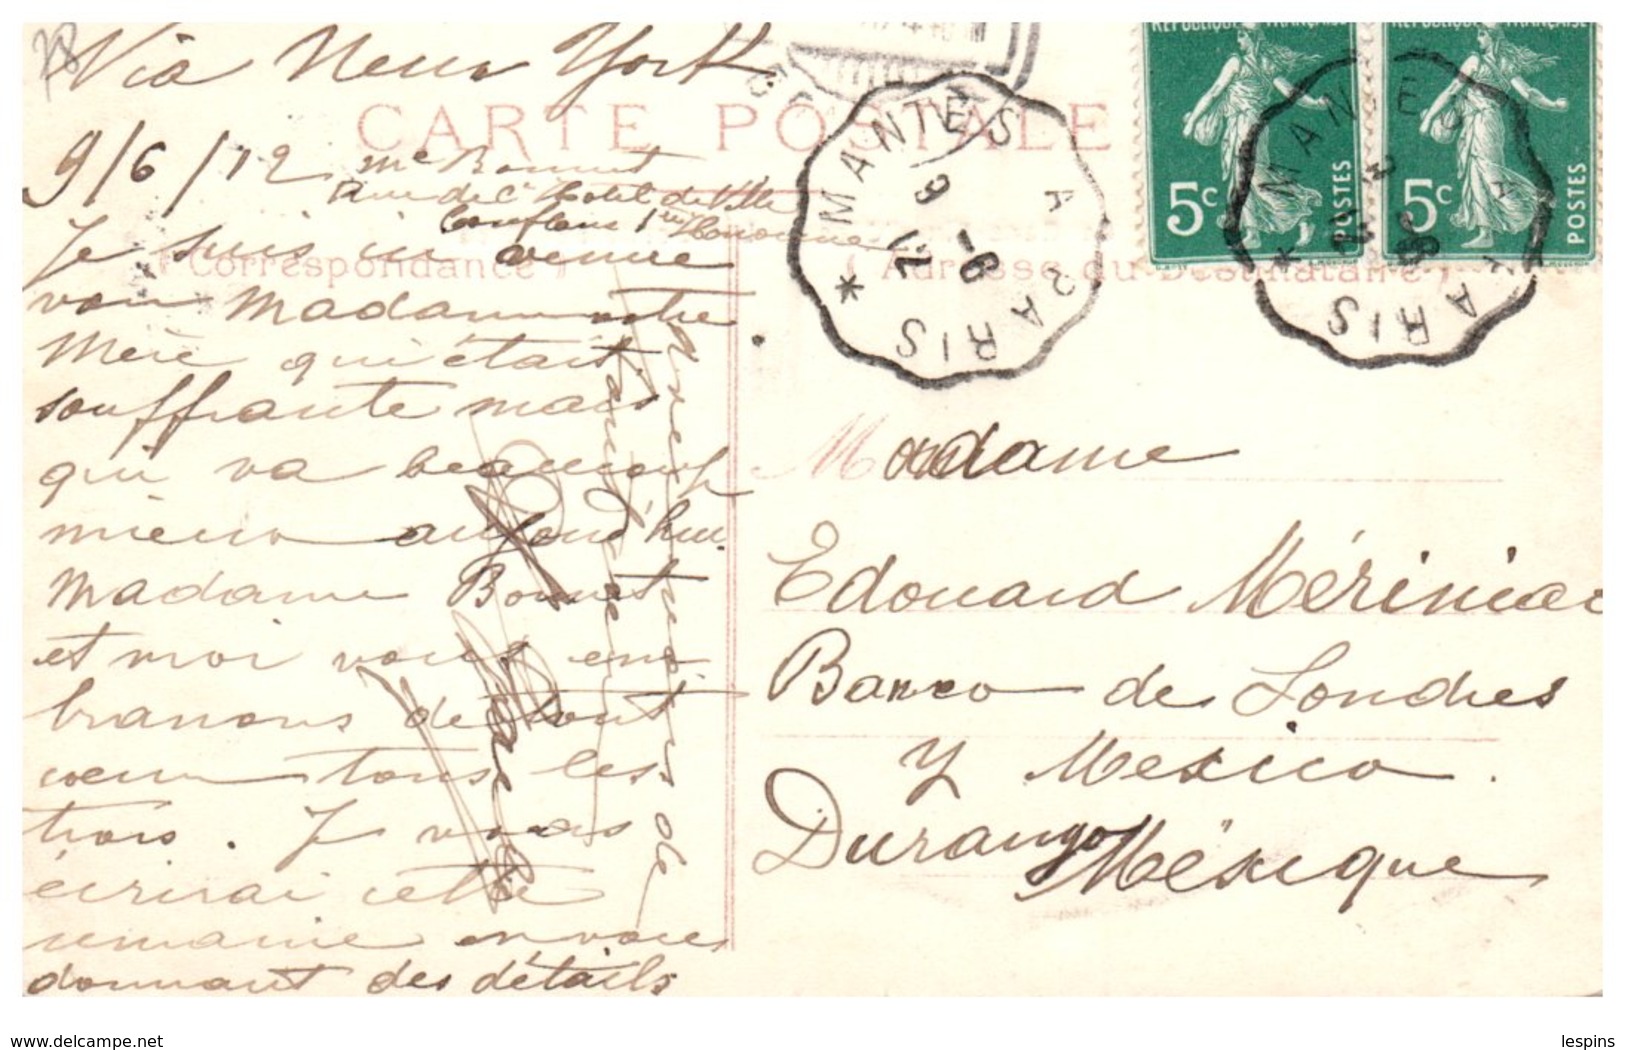 78
Via New York
CARTE POSTALE
9/6/12
Me Bonnet
Rue de l'Hotel de Ville
Conflans
( Correspondance )
( Adresse du Destinataire )
Je suis venue
voir Madame votre
Mère qui était
souffrante mais
qui va beaucoup
mieux aujourd'hui
Madame Bonnet
et moi vous em
brassons de tout
coeur tous les
trois. Je vous
écrirai cette
semaine en vous
donnant des détails
MANTES A PARIS *
9 -6
12
RÉPUBLIQUE FRANÇAISE
5c
POSTES
RÉPUBLIQUE FRANÇAISE
5c
POSTES
MANTES A PARIS *
Madame
Edouard
Banco de Londres
y Mexico.
Durango Mexique
delcampe.net
lespins